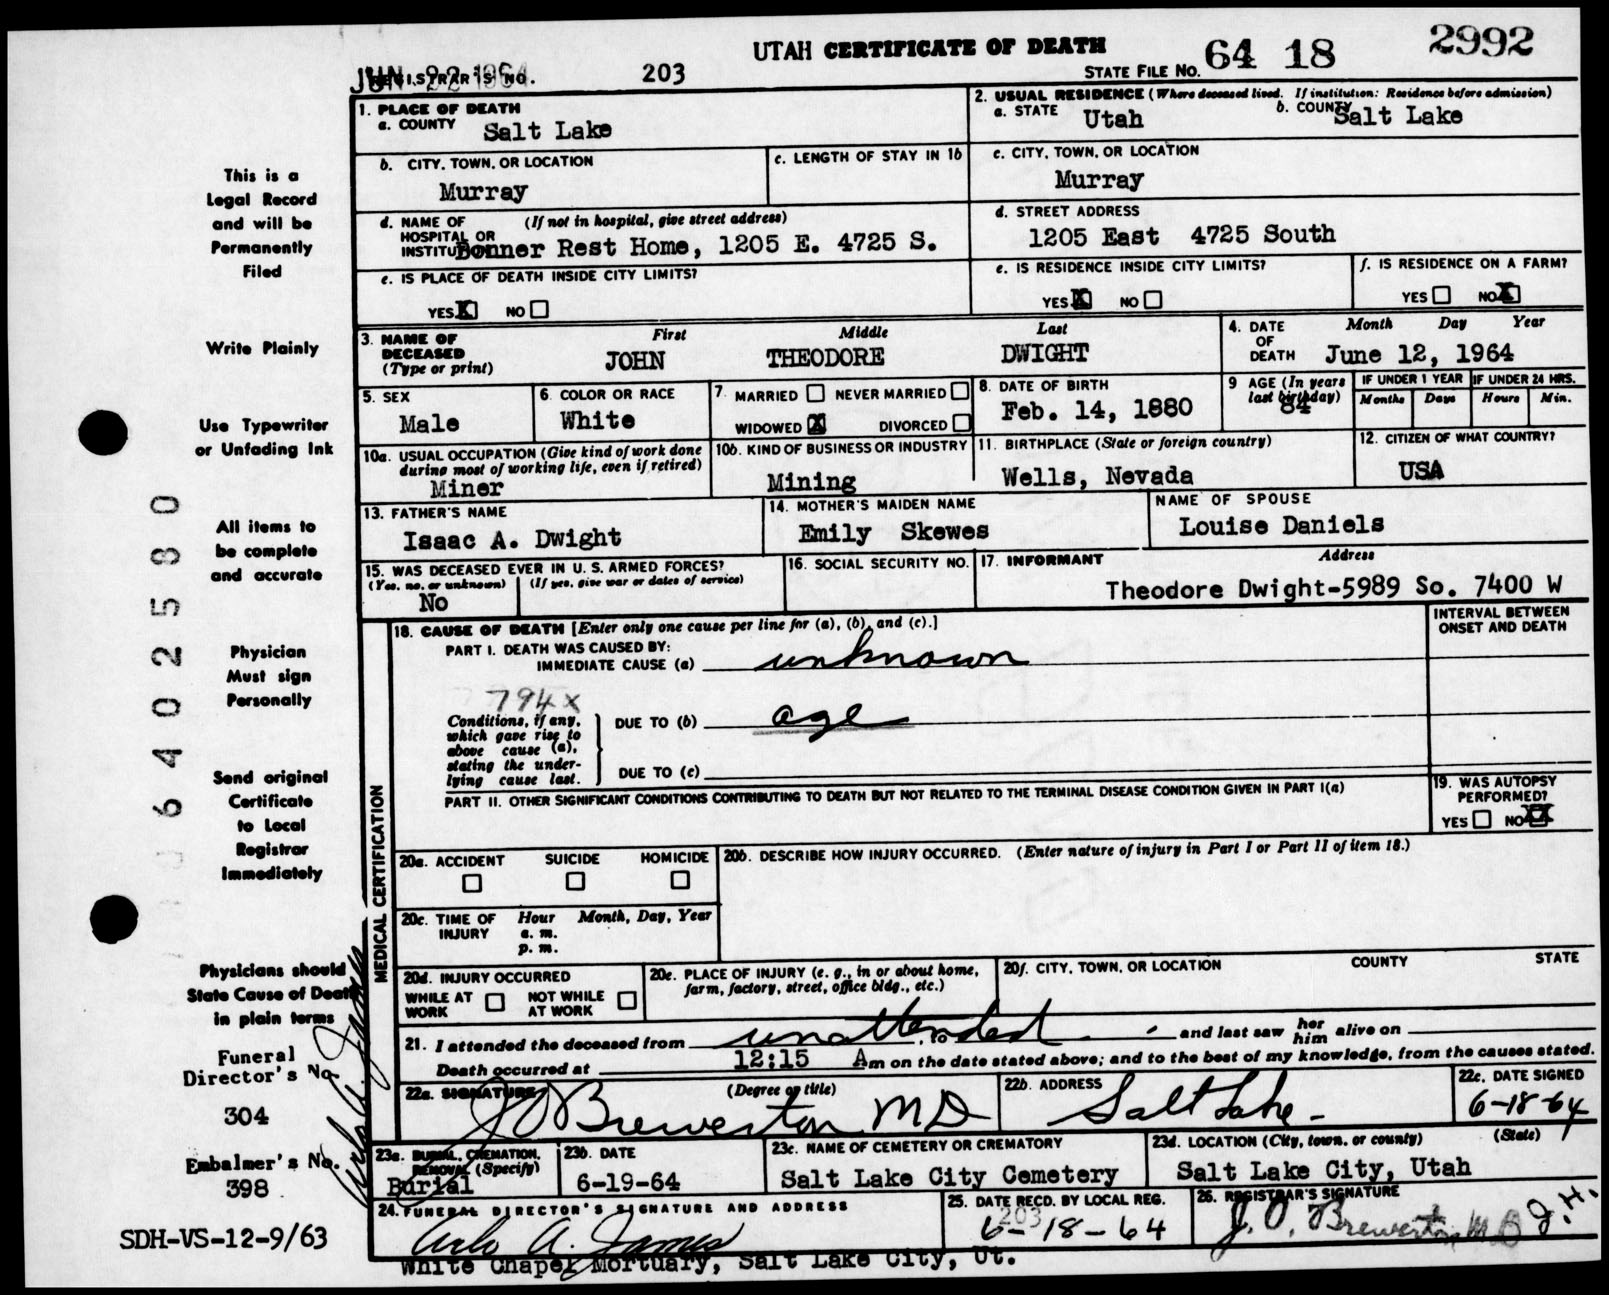 UTAH CERTIFICATE OF DEATH
64 18
2992
JUN 22 1964
REGISTRAR'S NO. 203
STATE FILE NO.
1. PLACE OF DEATH
a. COUNTY Salt Lake
2. USUAL RESIDENCE (Where deceased lived. If institution: Residence before admission)
a. STATE Utah
b. COUNTY Salt Lake
b. CITY, TOWN, OR LOCATION
Murray
c. LENGTH OF STAY IN 1b
c. CITY, TOWN, OR LOCATION
Murray
d. NAME OF HOSPITAL OR INSTITUTION (If not in hospital, give street address)
Bonner Rest Home, 1205 E. 4725 S.
d. STREET ADDRESS
1205 East 4725 South
e. IS PLACE OF DEATH INSIDE CITY LIMITS?
YES X NO
e. IS RESIDENCE INSIDE CITY LIMITS?
YES X NO
f. IS RESIDENCE ON A FARM?
YES NO X
3. NAME OF DECEASED (Type or print)
First Middle Last
JOHN THEODORE DWIGHT
4. DATE OF DEATH
Month Day Year
June 12, 1964
5. SEX
Male
6. COLOR OR RACE
White
7. MARRIED NEVER MARRIED
WIDOWED X DIVORCED
8. DATE OF BIRTH
Feb. 14, 1880
9 AGE (In years last birthday)
84
IF UNDER 1 YEAR
Months Days
IF UNDER 24 HRS.
Hours Min.
10a. USUAL OCCUPATION (Give kind of work done during most of working life, even if retired)
Miner
10b. KIND OF BUSINESS OR INDUSTRY
Mining
11. BIRTHPLACE (State or foreign country)
Wells, Nevada
12. CITIZEN OF WHAT COUNTRY?
USA
13. FATHER'S NAME
Isaac A. Dwight
14. MOTHER'S MAIDEN NAME
Emily Skewes
NAME OF SPOUSE
Louise Daniels
15. WAS DECEASED EVER IN U. S. ARMED FORCES?
(Yes, no, or unknown) (If yes, give war or dates of service)
No
16. SOCIAL SECURITY NO.
17. INFORMANT Address
Theodore Dwight-5989 So. 7400 W
MEDICAL CERTIFICATION
18. CAUSE OF DEATH [Enter only one cause per line for (a), (b), and (c).]
INTERVAL BETWEEN ONSET AND DEATH
PART I. DEATH WAS CAUSED BY:
IMMEDIATE CAUSE (a) unknown
794x
Conditions, if any, which gave rise to above cause (a), stating the underlying cause last.
DUE TO (b) age
DUE TO (c)
PART II. OTHER SIGNIFICANT CONDITIONS CONTRIBUTING TO DEATH BUT NOT RELATED TO THE TERMINAL DISEASE CONDITION GIVEN IN PART I(a)
19. WAS AUTOPSY PERFORMED?
YES NO X
20a. ACCIDENT SUICIDE HOMICIDE
20b. DESCRIBE HOW INJURY OCCURRED. (Enter nature of injury in Part I or Part II of item 18.)
20c. TIME OF INJURY Hour Month, Day, Year
a. m.
p. m.
20d. INJURY OCCURRED
WHILE AT WORK NOT WHILE AT WORK
20e. PLACE OF INJURY (e. g., in or about home, farm, factory, street, office bldg., etc.)
20f. CITY, TOWN, OR LOCATION COUNTY STATE
21. I attended the deceased from unattended, to and last saw her him alive on
Death occurred at 12:15 Am on the date stated above; and to the best of my knowledge, from the causes stated.
22a. SIGNATURE (Degree or title)
J O Brewerton MD
22b. ADDRESS
Salt Lake-
22c. DATE SIGNED
6-18-64
23a. BURIAL, CREMATION, REMOVAL (Specify)
Burial
23b. DATE
6-19-64
23c. NAME OF CEMETERY OR CREMATORY
Salt Lake City Cemetery
23d. LOCATION (City, town, or county) (State)
Salt Lake City, Utah
24. FUNERAL DIRECTOR'S SIGNATURE AND ADDRESS
Arlo A. James
White Chapel Mortuary, Salt Lake City, Ut.
25. DATE RECD. BY LOCAL REG.
203
6-18-64
26. REGISTRAR'S SIGNATURE
J. O. Brewerton MD J.H.
This is a
Legal Record
and will be
Permanently
Filed
Write Plainly
Use Typewriter
or Unfading Ink
All items to
be complete
and accurate
Physician
Must sign
Personally
Send original
Certificate
to Local
Registrar
Immediately
Physicians should
State Cause of Death
in plain terms
Funeral
Director's No.
304
Embalmer's No.
398
Arlo A. James
SDH-VS-12-9/63
6402580